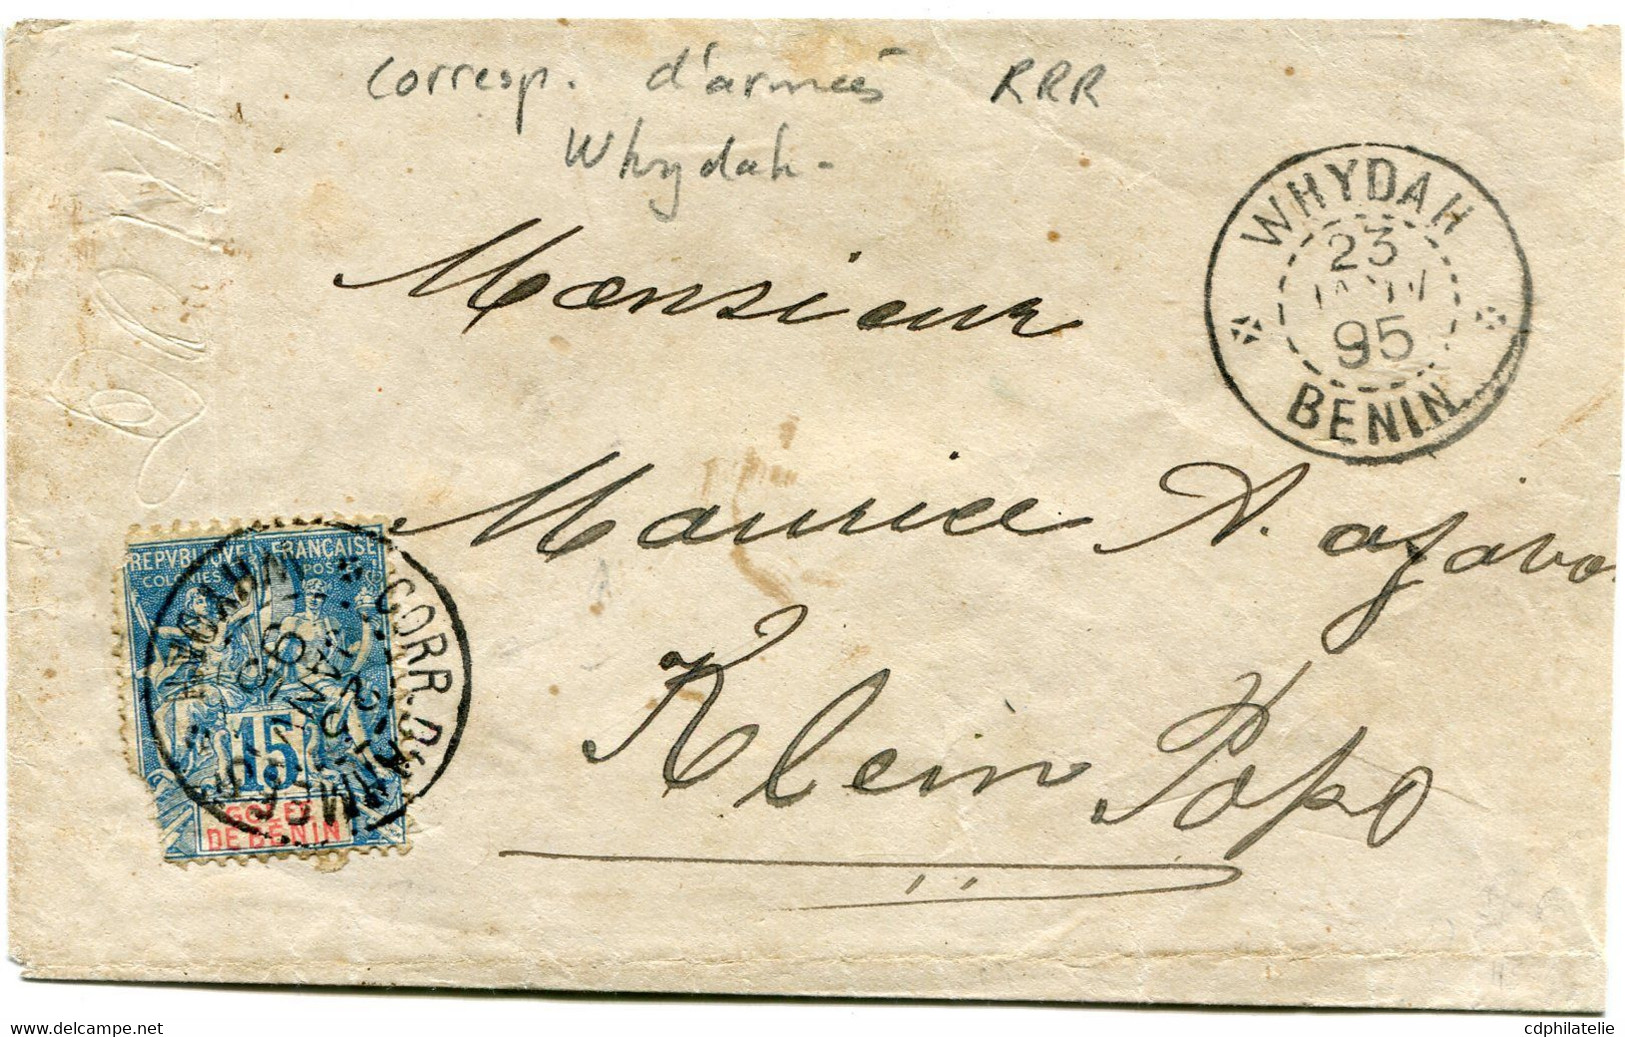 corresp. d'armées RRR
Whydah -
WHYDAH
23
95
BENIN
Monsieur
Maurice A. ajavo
Klein Popo
REPVBLIQVE FRANÇAISE
COLONIES POSTES
15
GOLFE
DE BÉNIN
CORR. D'ARMÉES
WHYDAH
95
cdphilatelie